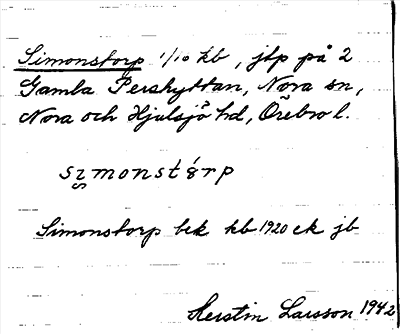 Simonstorp 1/10 kb, jtp på 2
Gamla Pershyttan, Nora sn,
Nora och Hjulsjö hd, Örebro l.
Simonstorp bek kb 1920 ek jb
Kerstin Larsson 1942